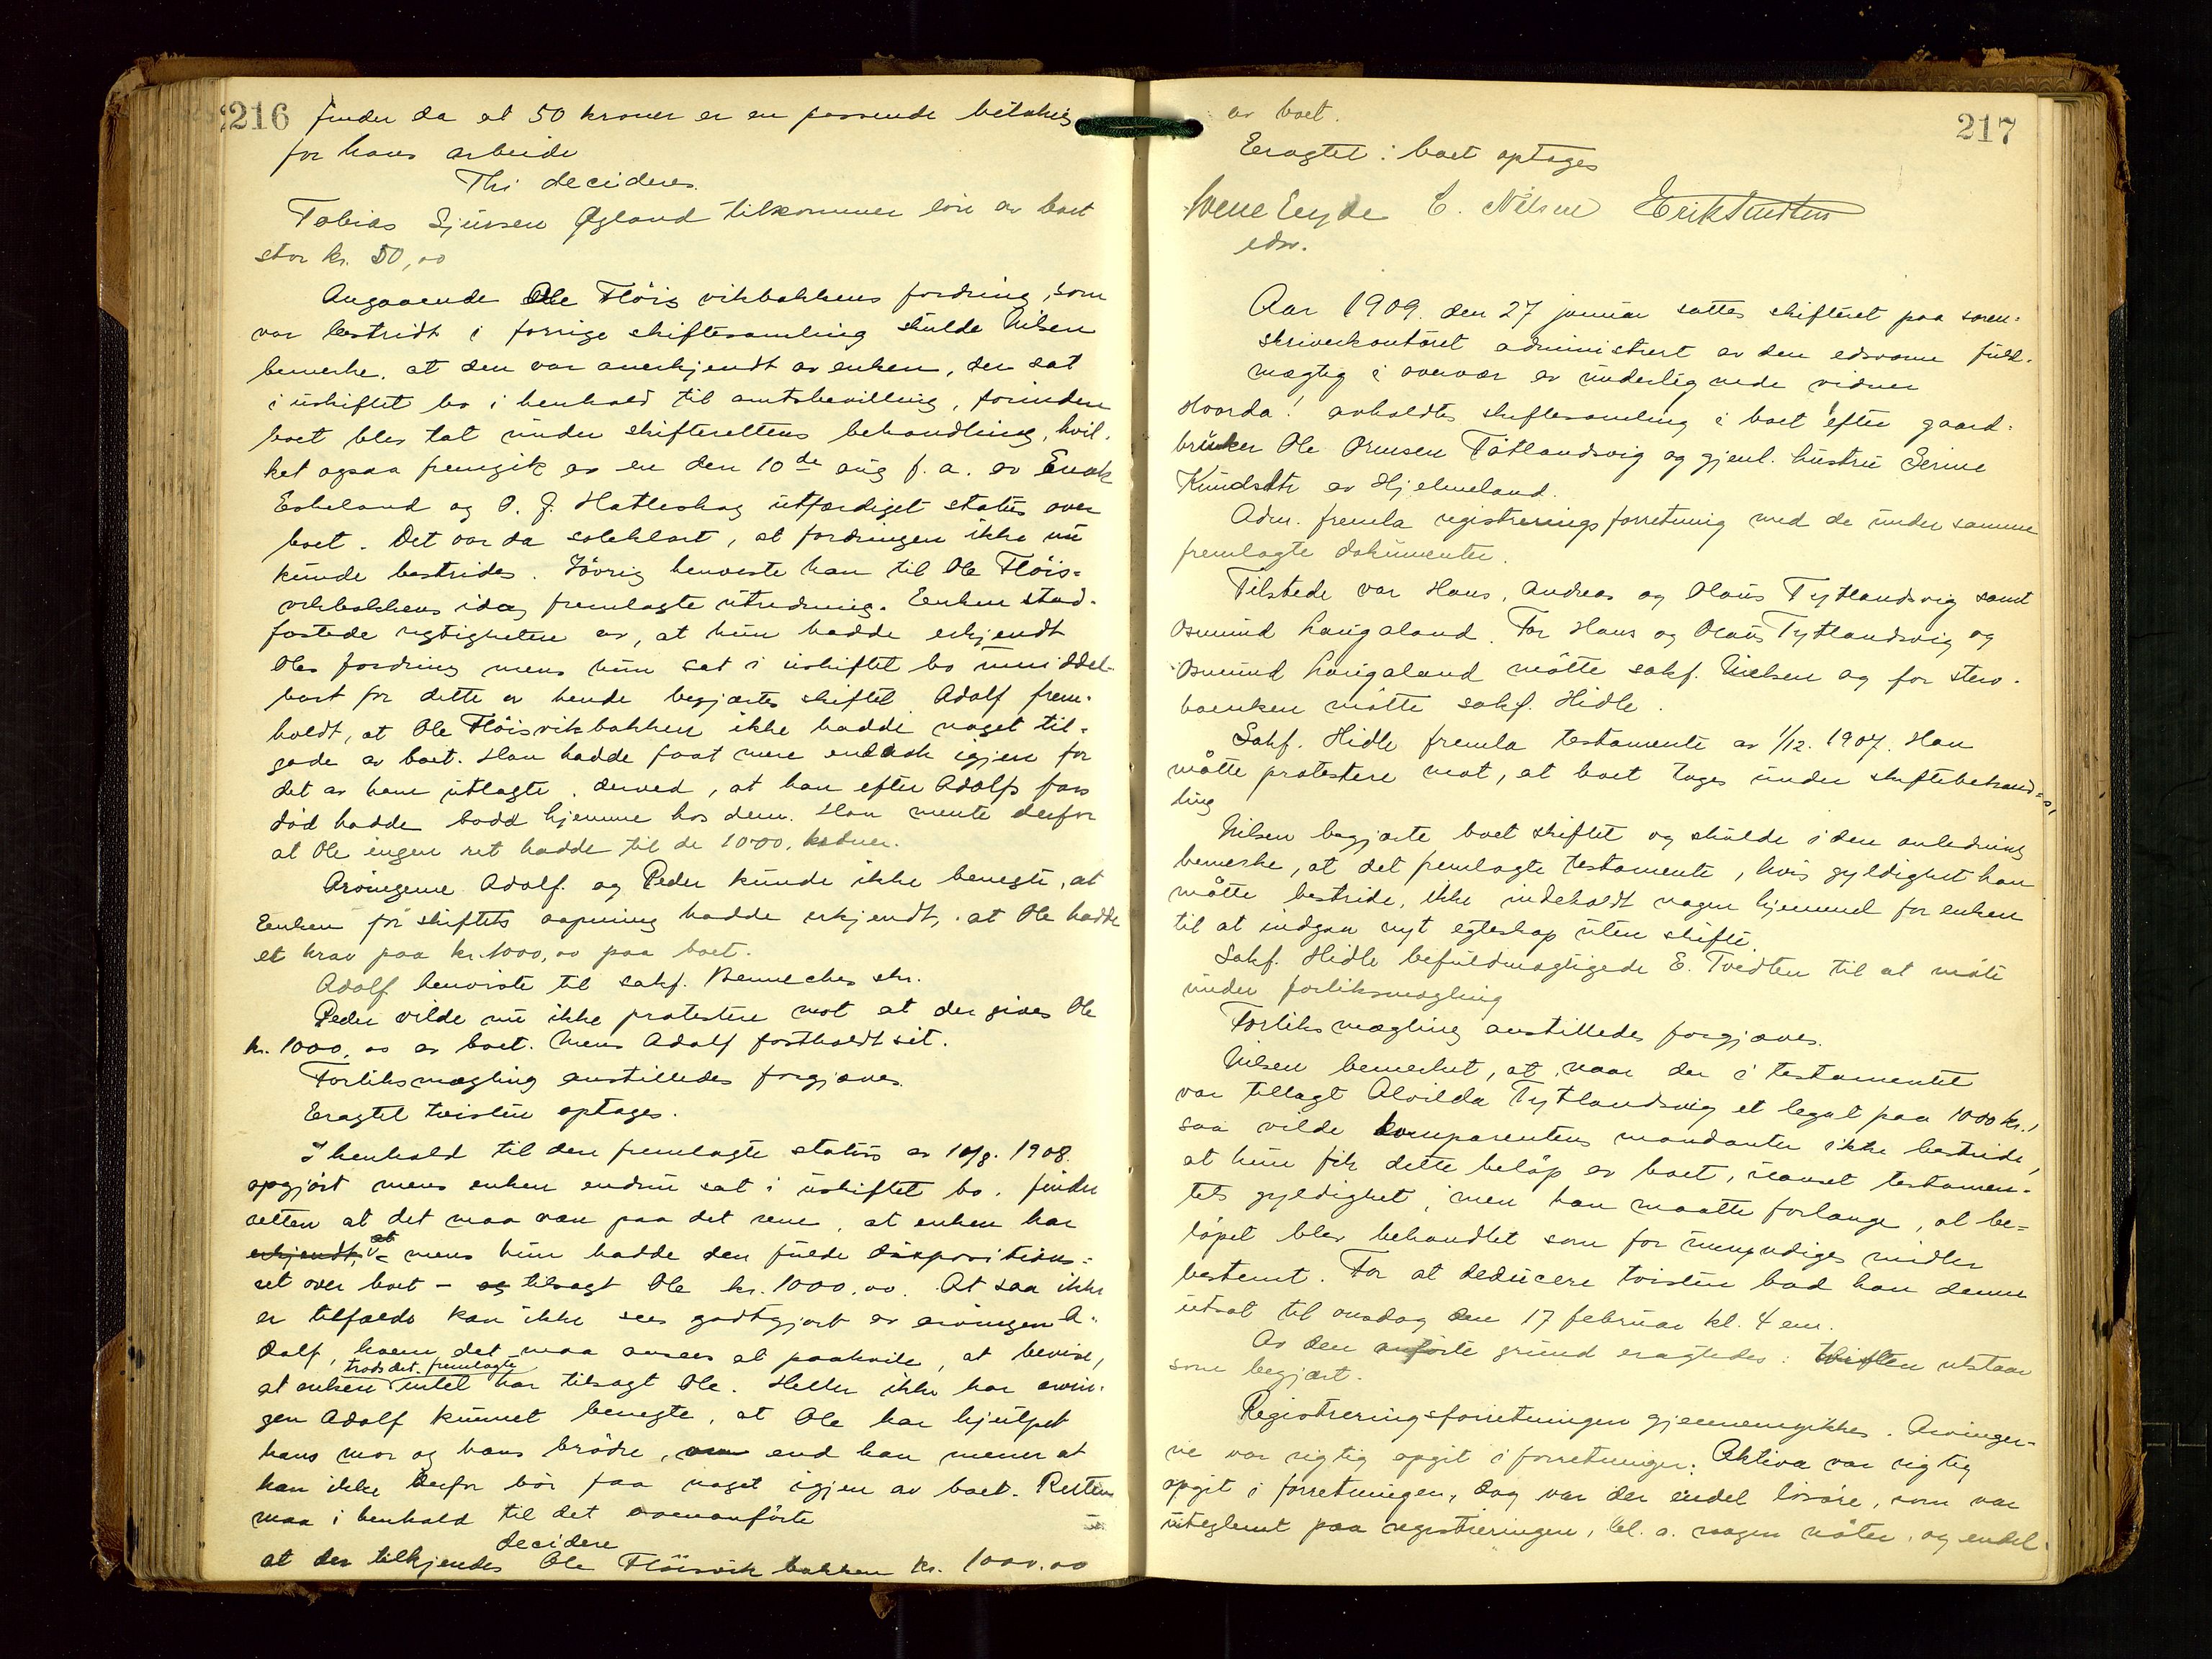 216
finder da at 50 kroner er en passende betaling
for hans arbeide
Thi decideres.
Tobias Sjursen Øgland tilkommer løn av boet
stor kr. 50,00
Angaaende Ole Fløisvikbakkens fordring, som
var bestridt i forrige skiftesamling skulde Nilsen
bemerke, at den var anerkjendt av enken, der sat
i uskiftet bo i henhold til amtsbevilling, forinden
boet blev tat under skifterettens behandling, hvil-
ket ogsaa fremgik av en den 10de aug f. a. av Enok
Eskeland og O. J. Hatleskog utfærdiget status over
boet. Det var da soleklart, at fordringen ikke nu
kunde bestrides. Iøvrig henviste han til Ole Fløis-
vikbakkens idag fremlagte utredning. Enken stad-
fæstede rigtigheten av, at hun hadde erkjendt
Oles fordring mens hun sat i uskiftet bo umiddel-
bart før dette av hende begjærtes skiftet. Adolf frem-
holdt, at Ole Fløisvikbakken ikke hadde noget til-
gode av boet. Han hadde faat mere end nok igjen for
det av ham utlagte, derved, at han efter Adolfs fars
død hadde bodd hjemme hos dem. Han mente derfor
at Ole ingen ret hadde til de 1000, kroner.
Arvingerne Adolf og Peder kunde ikke benegte, at
Enken før skiftets aapning hadde erkjendt, at Ole hadde
et krav paa kr. 1000,00 paa boet.
Adolf henviste til sakf. Benneches skr.
Peder vilde nu ikke protestere mot at der gives Ole
kr. 1000,00 av boet. Mens Adolf fastholdt sit.
Forliksmægling anstilledes forgjæves.
Eragtet tvisten optages.
I henhold til den fremlagte status av 10/8. 1908.
opgjort mens enken endnu sat i uskiftet bo, finder
retten at det maa være paa det rene, at enken har
erkjendt, at – mens hun hadde den fulde dispositions-
ret over boet – og tilsagt Ole kr. 1000.00. At saa ikke
er tilfælde kan ikke sees godtgjort av arvingen A-
dolf, hvem det maa ansees at paahvile, at bevise,
trods det fremlagte
at enken intet har tilsagt Ole. Heller ikke har arvin-
gen Adolf kunnet benegte, at Ole har hjulpet
hans mor og hans brødre, om end han mener at
han ikke derfor bør faa noget igjen av boet. Retten
maa i henhold til det ovenanførte
decidere
at der tilkjendes Ole Fløisvikbakken kr. 1000.00
217
av boet.
Eragtet: boet optages
E. Nilsen
edsv.
Aar 1909. den 27 januar sattes skifteret paa soren-
skriverkontoret administrert av den edsvorne fuld-
mægtig i overvær av underlignede vidner
Hvorda! avholdtes skiftesamling i boet efter gaard-
bruker Ole Ormsen Tøtlandsvig og gjenl. hustru Serine
Knudsdtr av Hjelmeland.
Adm. fremla registreringsforretning med de under samme
fremlagte dokumenter.
Tilstede var Hans, Andreas og Olaus Tytlandsvig samt
Osmund Laugaland. For Hans og Olaus Tytlandsvig og
Osmund Laugaland møtte sakf. Nielsen og for sterv-
boenken møtte sakf. Hidle.
Sakf. Hidle fremla testamente av 1/12. 1907. Han
møtte protestere mot, at boet toges under skiftebehand-
ling
Nilsen begjærte boet skiftet og skulde i den anledning
bemerke, at det fremlagte testamente, hvis gyldighet han
møtte bestride, ikke indeholdt nogen hjemmel for enken
til at indgaa nyt egteskap uten skifte.
Sakf. Hidle befuldmægtigede E. Tvedten til at møte
under forliksmægling
Forliksmægling anstilledes forgjæves.
Nilsen bemerket, at naar der i testamentet
var tillagt Alvilda Tytlandsvig et legat paa 1000 kr.,
saa vilde komparentens mandanter ikke bestride,
at hun fik dette beløp av boet, uanset testamen-
tets gyldighet, men han maatte forlange, at be-
løpet blev behandlet som for umyndiges midler
bestemt. For at deducere tvisten bad han denne
utsat til onsdag den 17 februar kl. 4 em.
Av den anførte grund eragtedes: tvisten utstaar
som begjært.
Registreringsforretningen gjennemgikkes. Arvinger-
ne var rigtig opgit i forretningen. Aktiva var rigtig
opgit i forretningen, dog var der endel løsøre, som var
uteglemt paa registreringen, bl. a. nogen nøter, og endel